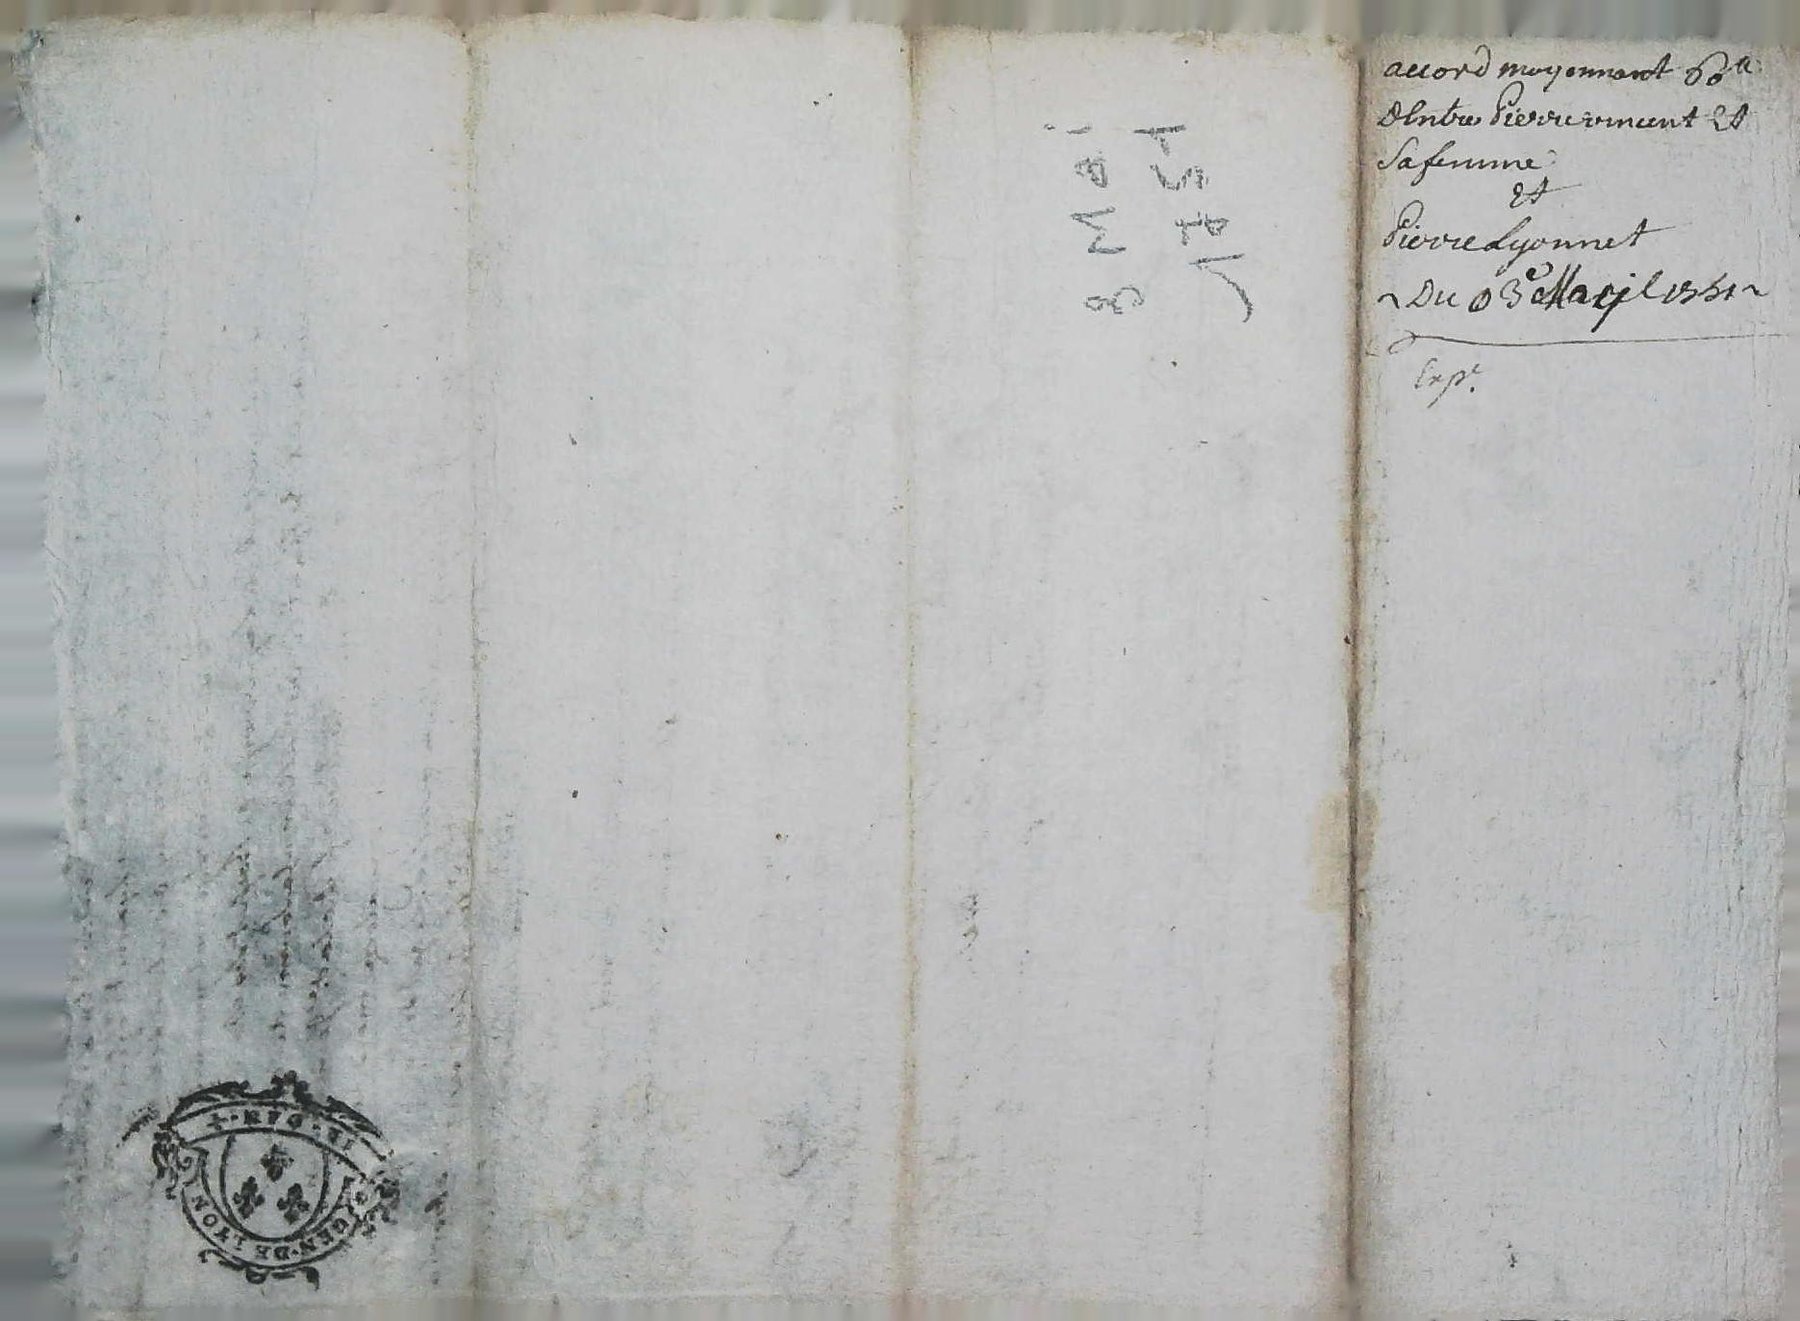 accord moyennant 60ᵗᵗ
d'Entre Pierre vincent Et
Sa femme
Et
Pierre Lyonnet
~ Du 03ᵉ May 1751 ~
Expᵉ.
3 Mai
1751
GEN · DE LYON